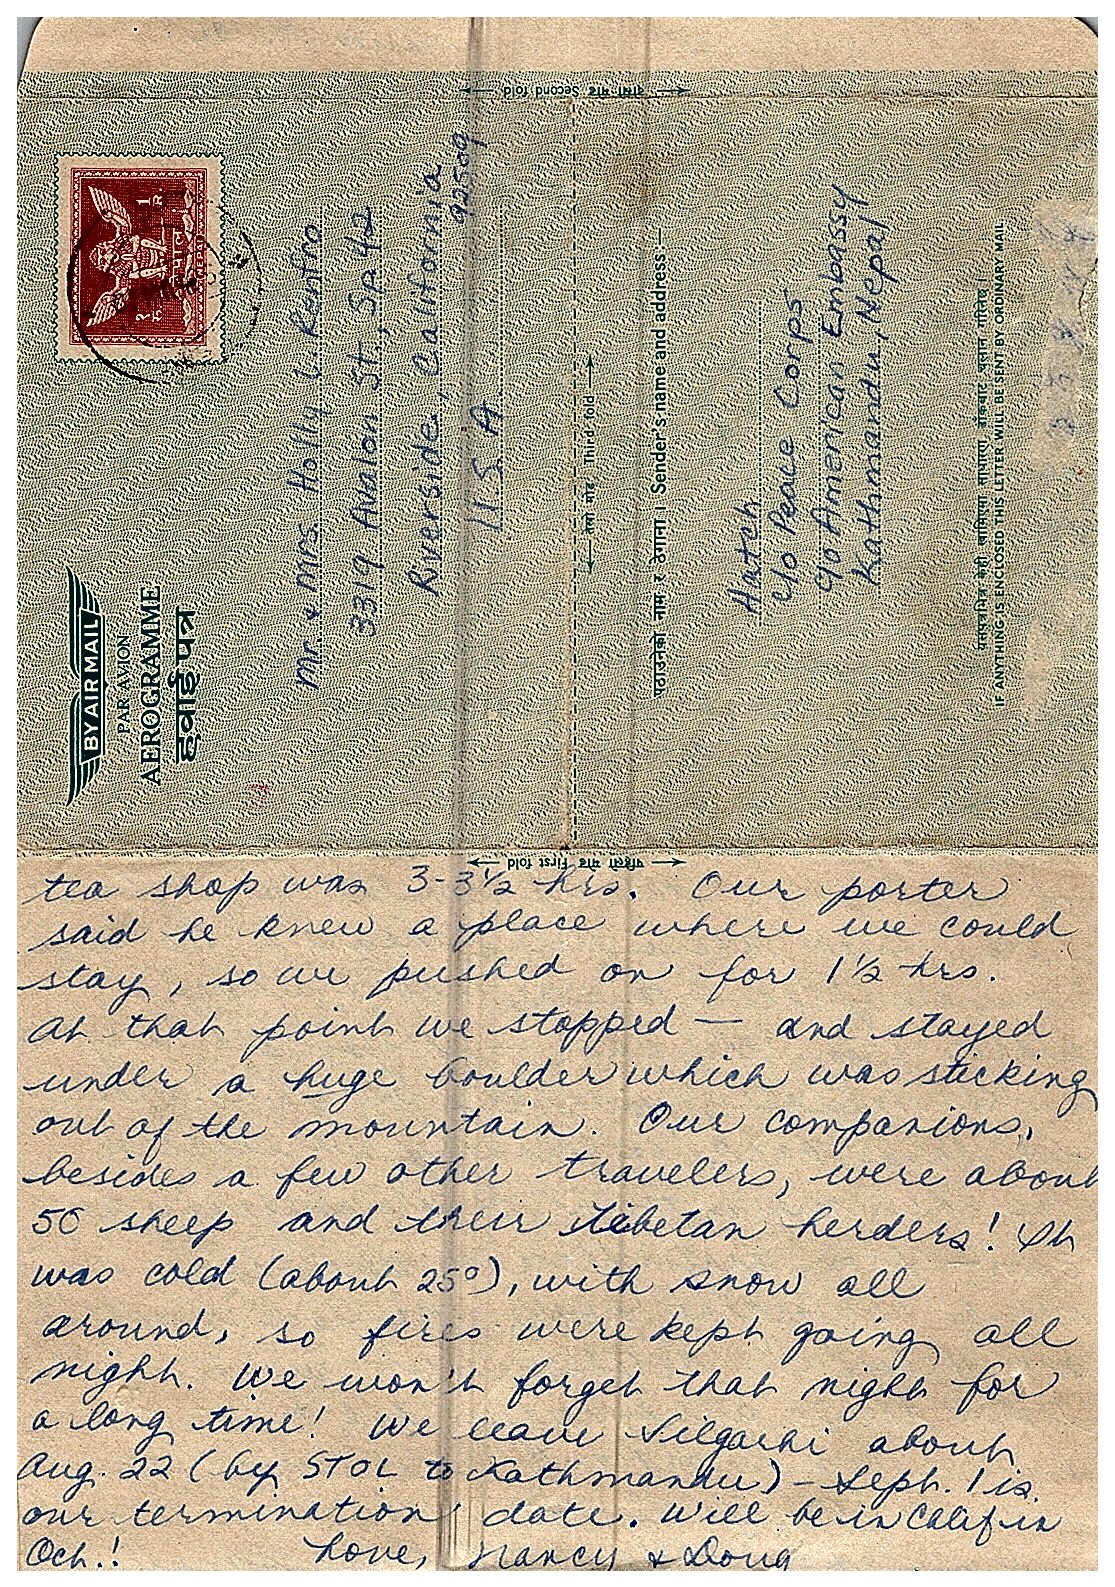 दोस्रो मोड Second fold
BY AIR MAIL
PAR AVION
AEROGRAMME
हवाईपत्र
नेपाल
NEPAL
१ रु
1 R.
Mr. & Mrs. Holly L. Renfro
3319 Avalon St., Sp. 42
Riverside, California
92509
U.S.A
तेस्रो मोड Third fold
पठाउनेको नाम र ठेगाना । Sender's name and address —
Hatch
c/o Peace Corps
c/o American Embassy
Kathmandu, Nepal
IF ANYTHING IS ENCLOSED THIS LETTER WILL BE SENT BY ORDINARY MAIL
पहिलो मोड First fold
tea shop was 3-3½ hrs. Our porter
said he knew a place where we could
stay, so we pushed on for 1½ hrs.
At that point we stopped — and stayed
under a huge boulder which was sticking
out of the mountain. Our companions,
besides a few other travelers, were about
50 sheep and their Tibetan herders! It
was cold (about 25°), with snow all
around, so fires were kept going all
night. We won't forget that night for
a long time! We leave Silgarhi about
Aug. 22 (by STOL to Kathmandu) – Sept. 1 is
our termination date. Will be in Calif in
Oct.! Love, Nancy & Doug